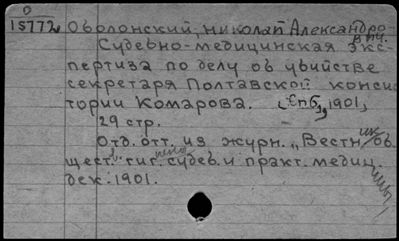 О
15772 Оболонский, Николай Александро-
вич.
Судебно-медицинская экс-
пертиза по делу об убийстве
секретаря Полтавской конси
тории Комарова. (Спб., 1901,
29 стр.
Отд. отт. из журн. „Вестник об
щест. гиг. судеб. и практ. медиц."
дек. 1901.